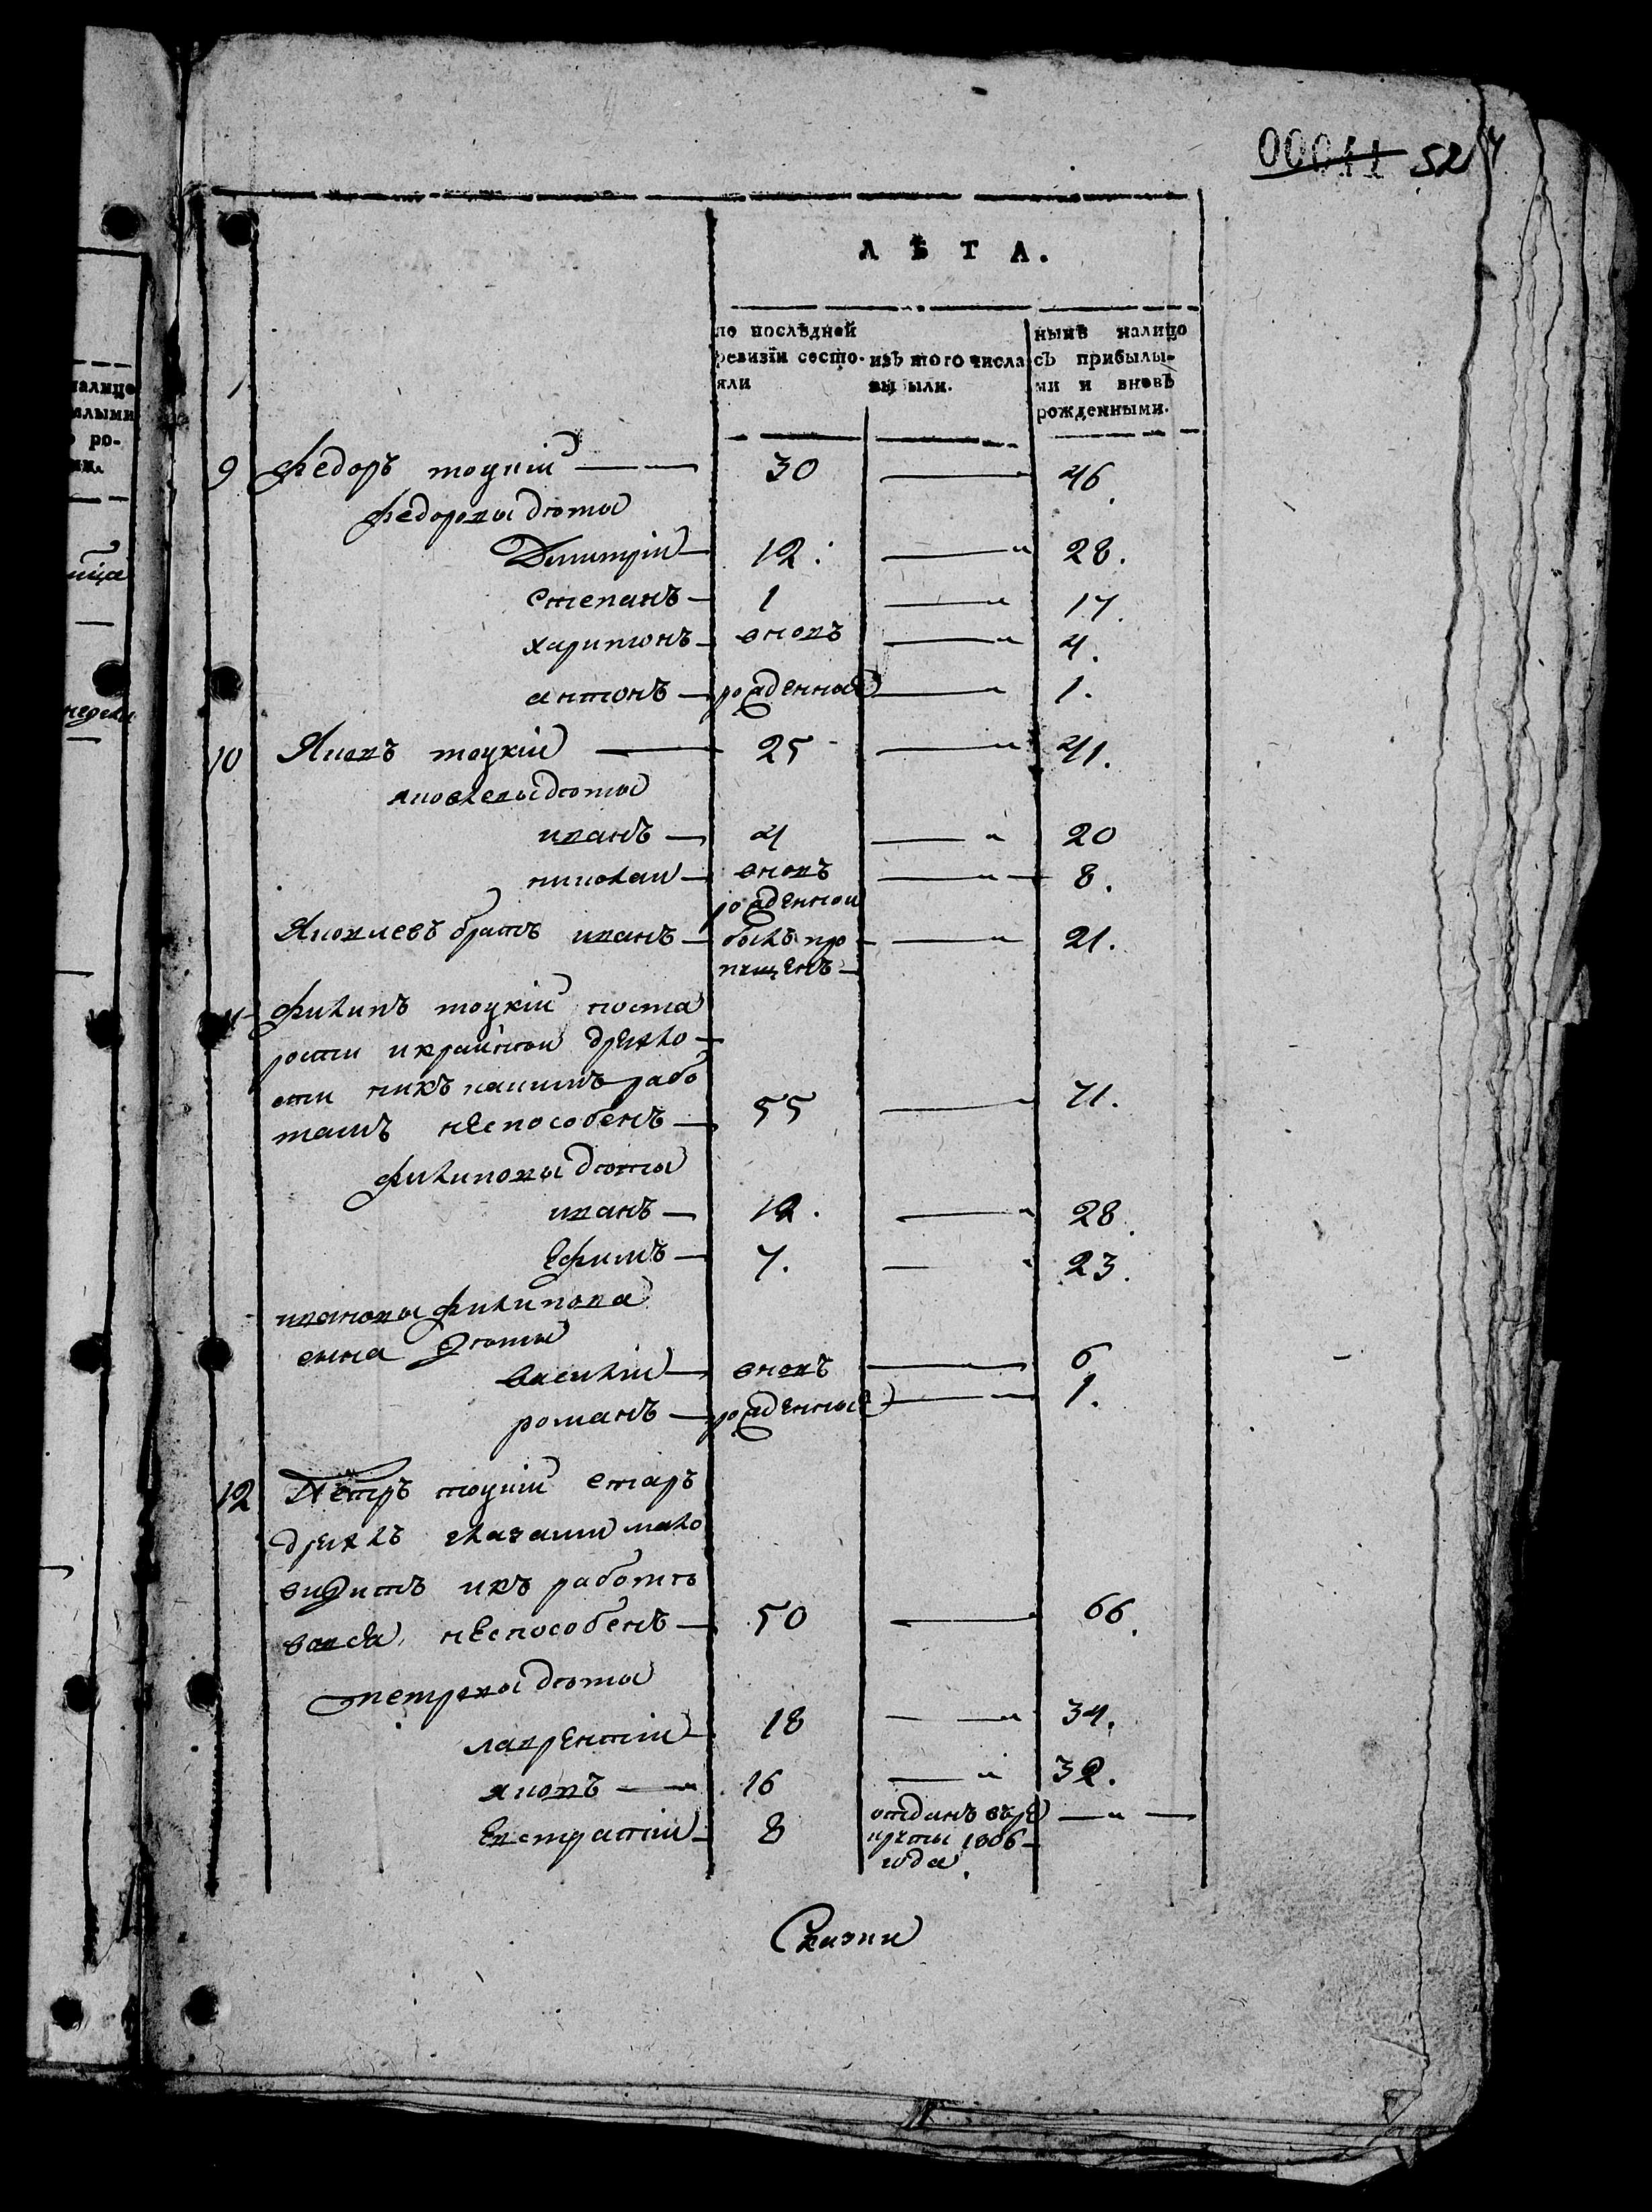 00041 52
ЛѢТА.
по послѣдней ревизіи состояли
изъ того числа выбыли.
нынѣ налицо съ прибылыми и вновь рожденными.
9 Федоръ тоцкій 30 — 46
Федоровы дѣти
Димитрій 12. — 28.
степанъ 1 — 17.
харитонъ вновь — 4.
антонъ рожденные — 1.
10 Яковъ тоцкій 25 — 41.
яковлевы дѣти
иванъ 4 — 20
николай вновь — 8.
рожденной
Яковлевъ братъ иванъ былъ про — 21.
пущенъ
11 Филипъ тоцкій поста
рости икрайной дряхло
сти никъ какимъ рабо
тамъ неспособенъ 55 — 71.
филиповы дѣти
иванъ 12. — 28
Ефимъ 7. — 23.
ивановы филипова
сына дѣти
василій вновь — 6
романъ рожденные — 1.
12 Петръ тоцкій старъ
дряхлъ глазами мало
видитъ икъ работѣ
вовся неспособенъ 50 — 66.
петровы дѣти
лаврентій 18 — 34.
яковъ 16 — 32.
Евстратій 8 отданъ въре —
круты 1806
года
Сказки
налицо
ро-